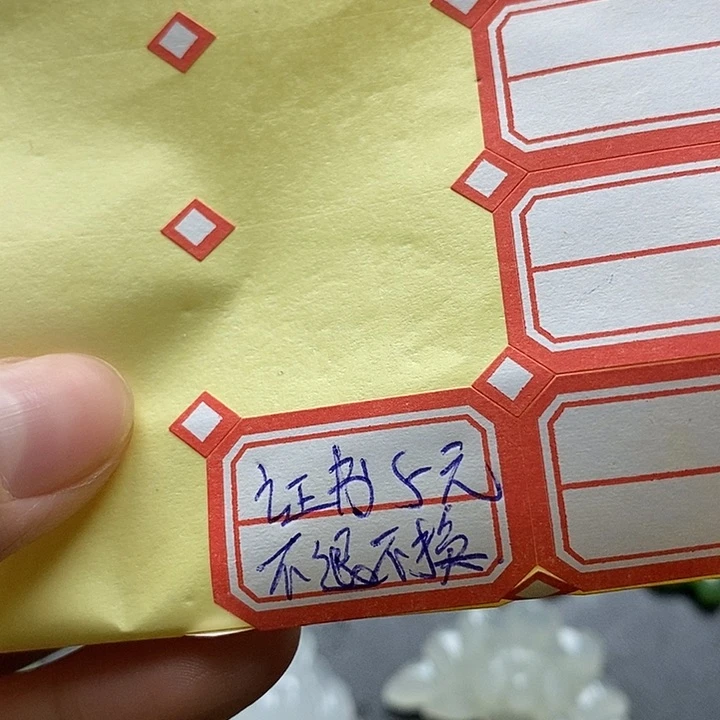 证书5元
不退不换